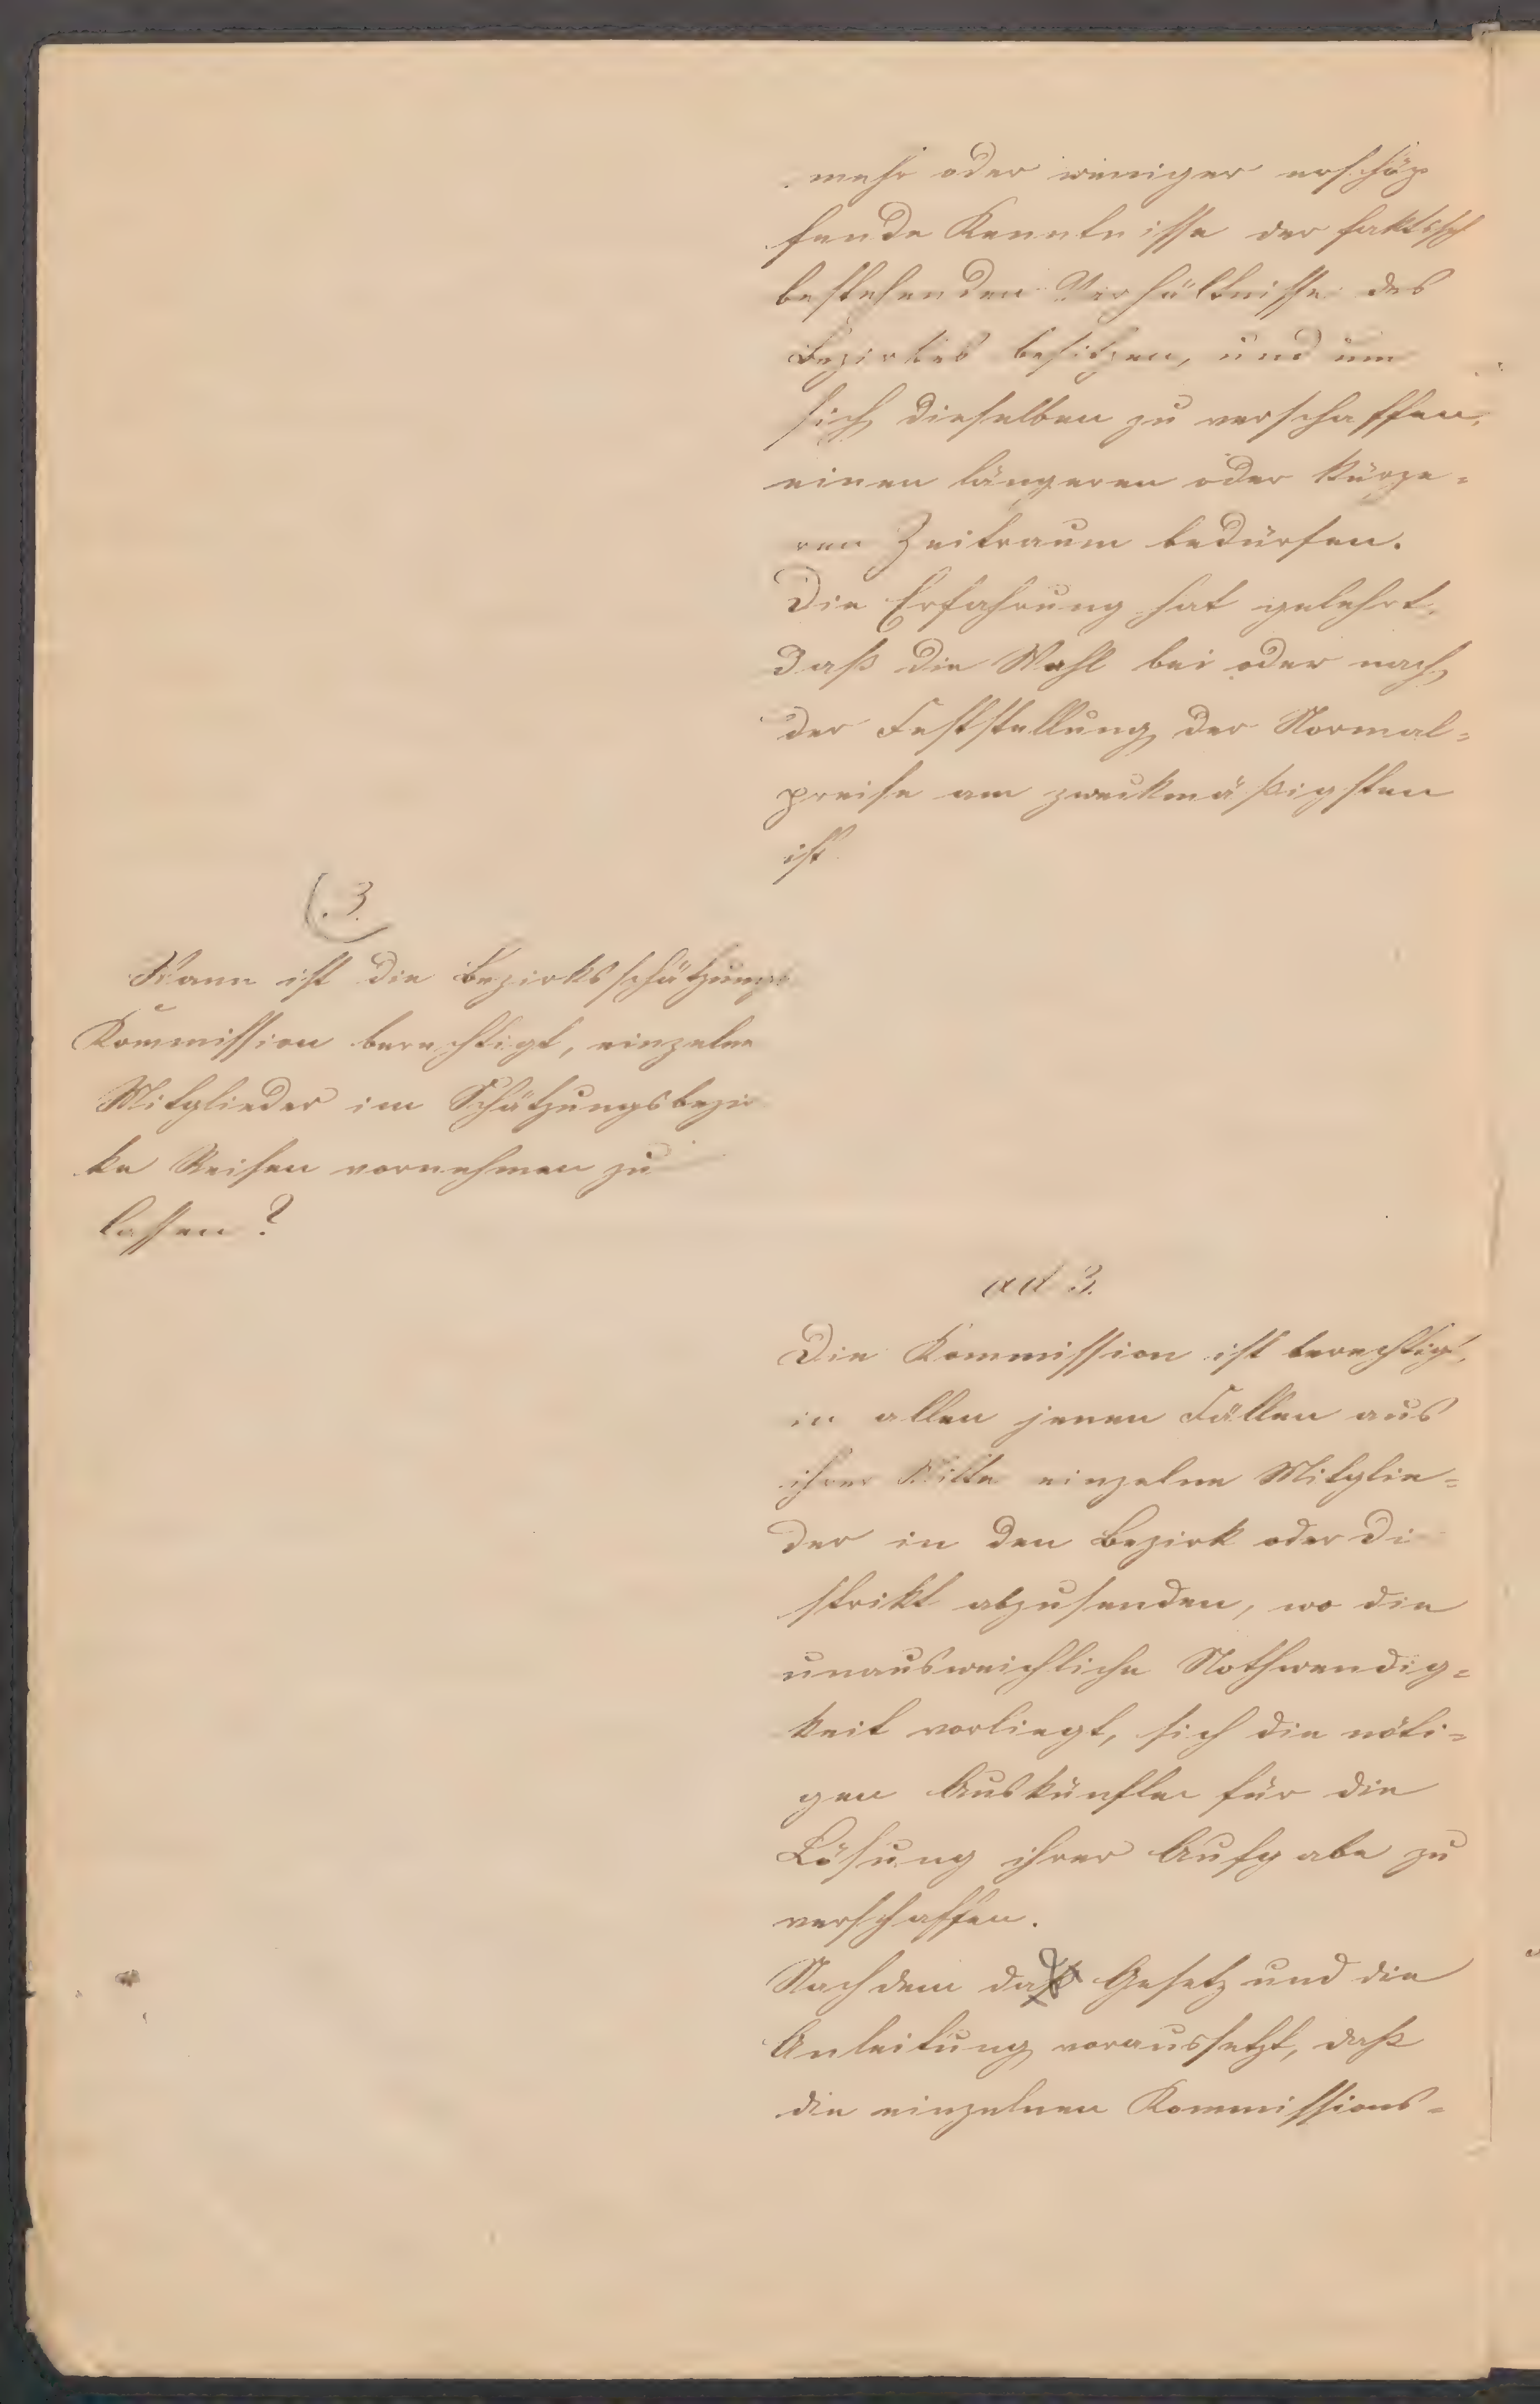 mehr oder weniger erschöp
fende Kenntnisse der faktisch
bestehenden Verhältnisse des
Bezirkes besitzen, und um
sich dieselben zu verschaffen,
einen längeren oder kürze=
ren Zeitraum bedürfen.
Die Erfahrung hat gelehrt,
daß die Wahl bei oder nach
der Feststellung der Normal=
preise am zweckmäßigsten
ist
3.
Wann ist die Bezirksschätzungs
Kommission berechtigt, einzelne
Mitglieder im Schätzungsbezir
ke Reisen vornehmen zu
lassen?
ad 3.
Die Kommission ist berechtigt,
in allen jenen Fällen aus
ihrer Mitte einzelne Mitglie=
der in den Bezirk oder Di
strikt abzusenden, wo die
unausweichliche Nothwendig=
keit vorliegt, sich die nöti=
gen Auskünfte für die
Lösung ihrer Aufgabe zu
verschaffen.
Nachdem das Gesetz und die
Anleitung voraussetzt, daß
die einzelnen Kommissions=